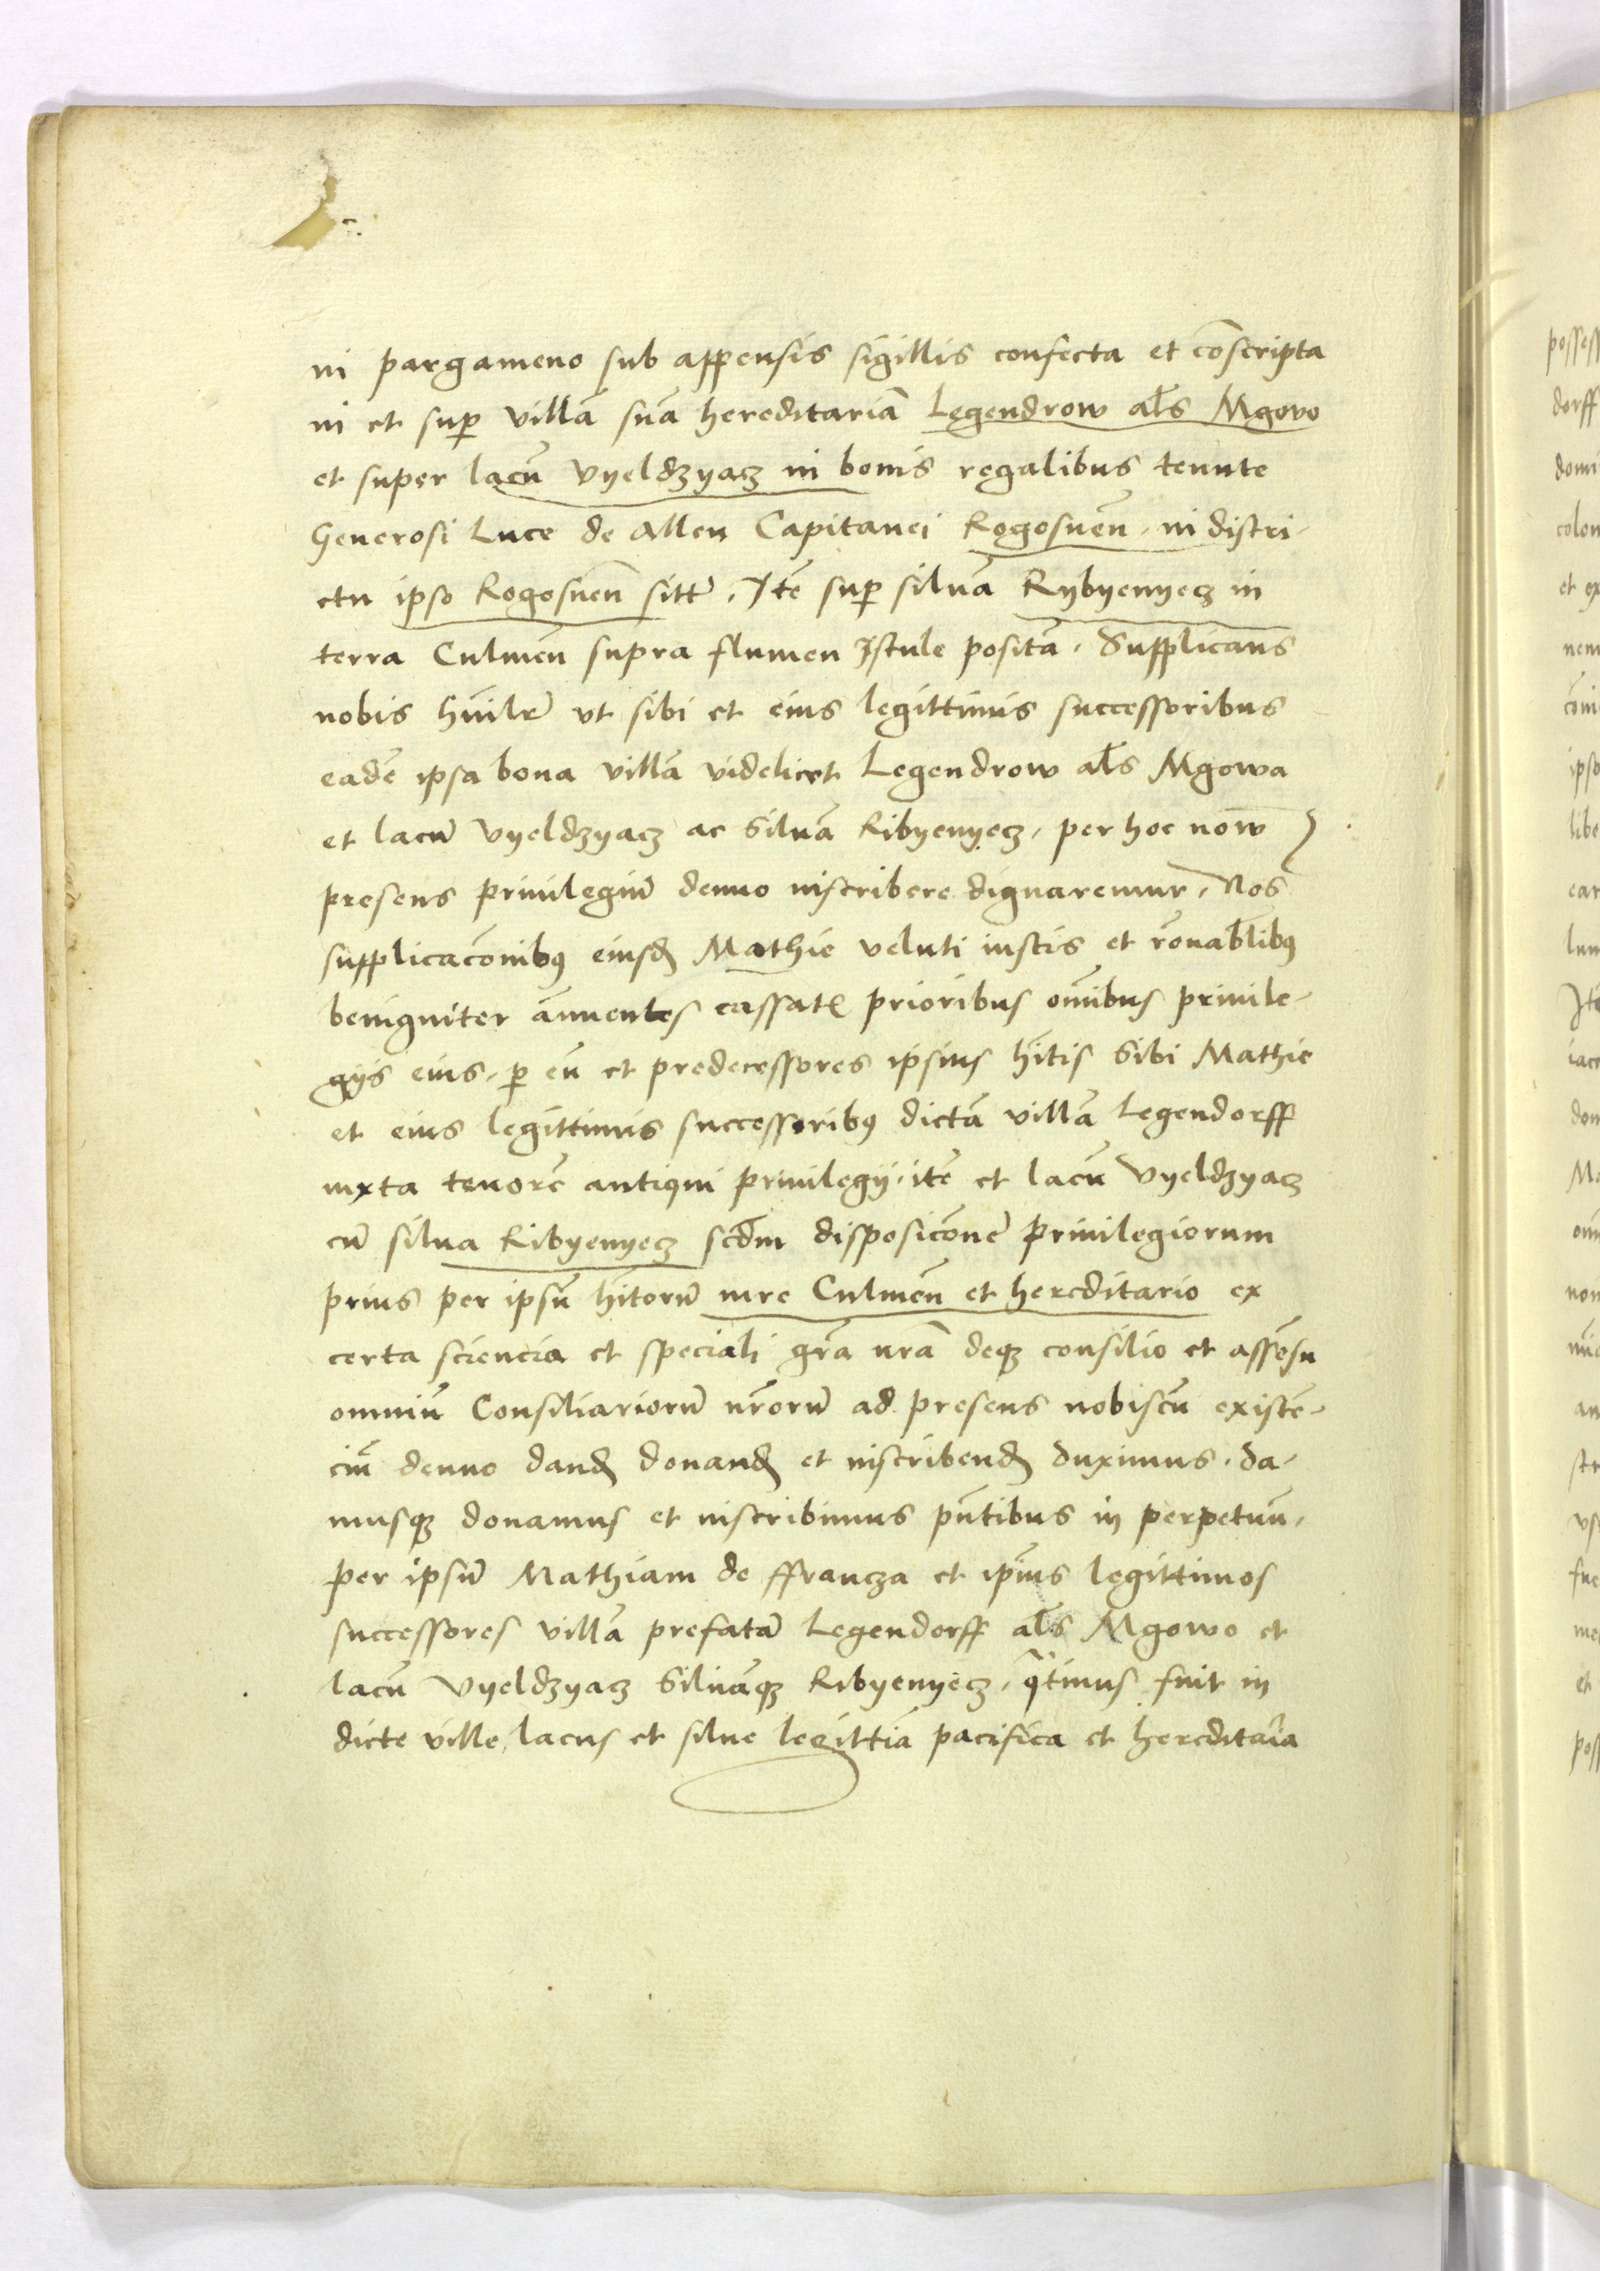 in pargameno sub appensis sigillis confecta et cōscripta
in et sup villā suā hereditariā Legendrow als Mgowo
et super lacū Vyeldzyacz in bonis regalibus tenute
Generosi Luce de Allen Capitanei Rogosnen̄. in distri-
ctu ipso Rogosnen̄ sitū. Itē sup siluā Rybyenyecz in
terra Culmen̄ supra flumen Istule positā. Supplicans
nobis hūilr̄ vt sibi et eius legittimis successoribus
eadē ipsa bona villā videlicet Legendrow als Mgowa
et lacū Vyeldzyacz ac Siluā Ribyenyecz, per hoc now̄
presens priuilegiū denuo inscribere dignaremur, Nos
supplicacōnibꝰ eiusd̄ Mathie veluti iustis et rōnablibꝰ
benigniter ānuentes cassatꝭ prioribus om̄ibus priuile-
gijs eius, ꝑ eū et predecessores ipsius hītis Sibi Mathie
et eius legittimis successoribꝰ dictā villā Legendorff
iuxta tenorē antiqui priuilegij, itē et lacū Vyeldzyacz
cū silua Ribyenyecz scdm̄ disposicōnē priuilegiorum
prius per ipsū hītorū iure Culmen̄ et hereditario ex
certa sciencia et speciali grā nrā deqꝫ consilio et assēsu
omniū Consiliariorū nrōrū ad presens nobiscū existē-
ciū denuo dand̄ donand̄ et inscribend̄ duximus. da-
musqꝫ donamus et inscribimus pn̄tibus in perpetuū,
per ipsū Mathiam de ffrancza et ip̄ius legittimos
successores villā prefatā Legendorff als Mgowo et
lacū Vyeldzyacz Siluāqꝫ Ribyenyecz, q̄tinus fuit in
dicte ville, lacus et silue legittiā pacifica et hereditaria